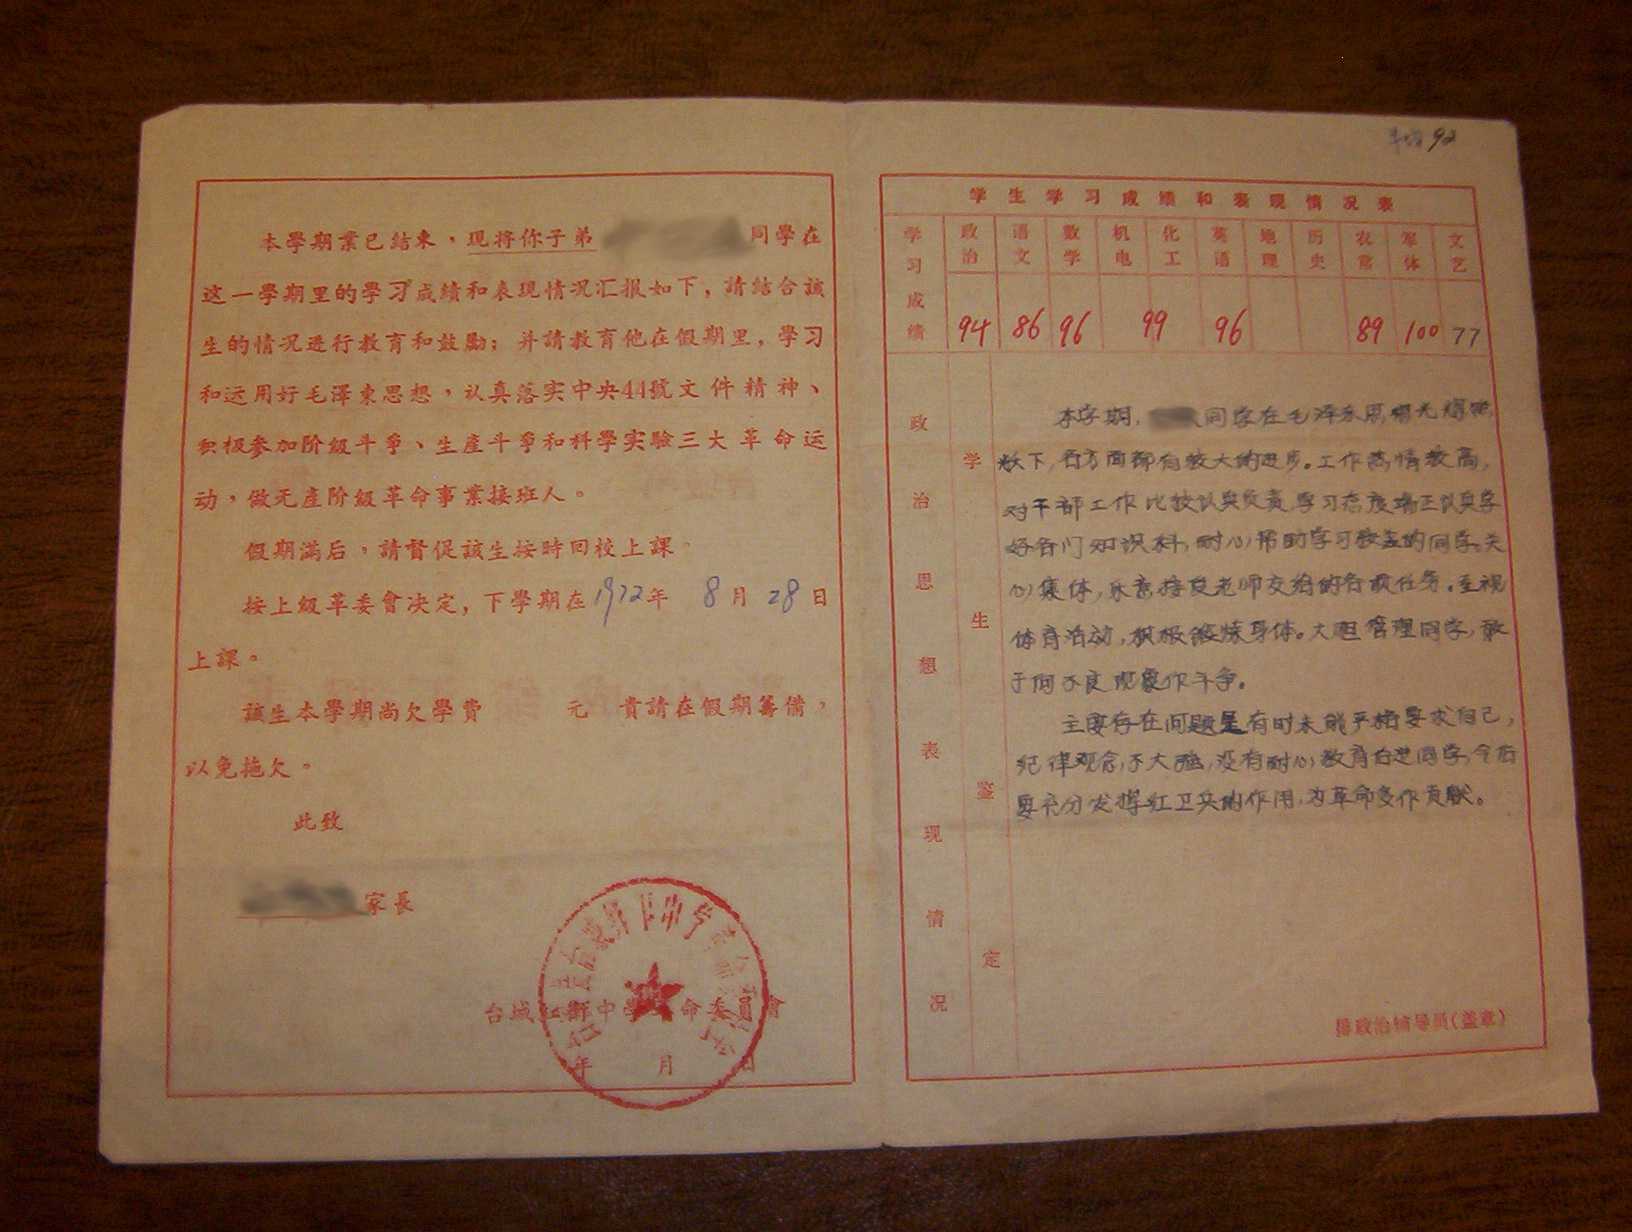 本學期業已結束，现将你子弟 同學在
这一學期里的學习成績和表現情况汇报如下，請結合該
生的情况进行教育和鼓勵；并請教育他在假期里，學习
和运用好毛澤東思想，认真落实中央44號文件精神、
积极参加阶級斗爭、生產斗爭和科學实驗三大革命运
动，做无產阶級革命事業接班人。
假期滿后，請督促該生按時回校上課。
按上級革委會决定，下學期在1972年 8月 28日
上課。
該生本學期尚欠學費 元 貴請在假期籌備，
以免拖欠。
此致
家長
台城红衛中學革命委員會
年 月 日
平均 92
学生学习成绩和表现情况表
学习成绩 政治 语文 数学 机电 化工 英语 地理 历史 农常 军体 文艺
94 86 96 99 96 89 100 77
政治思想表现情况
学生鉴定
本学期， 同学在毛泽东思想光辉照
耀下，各方面都有较大的进步。工作热情较高，
对干部工作比较认真负责，学习态度端正认真学
好各门知识科，耐心帮助学习较差的同学。关
心集体，乐意接受老师交给的各项任务。重视
体育活动，积极锻炼身体。大胆管理同学，敢
于同不良现象作斗争。
主要存在问题是有时未能严格要求自己，
纪律观念不大强，没有耐心教育后进同学，今后
要充分发挥红卫兵的作用，为革命多作贡献。
排政治辅导员(盖章)